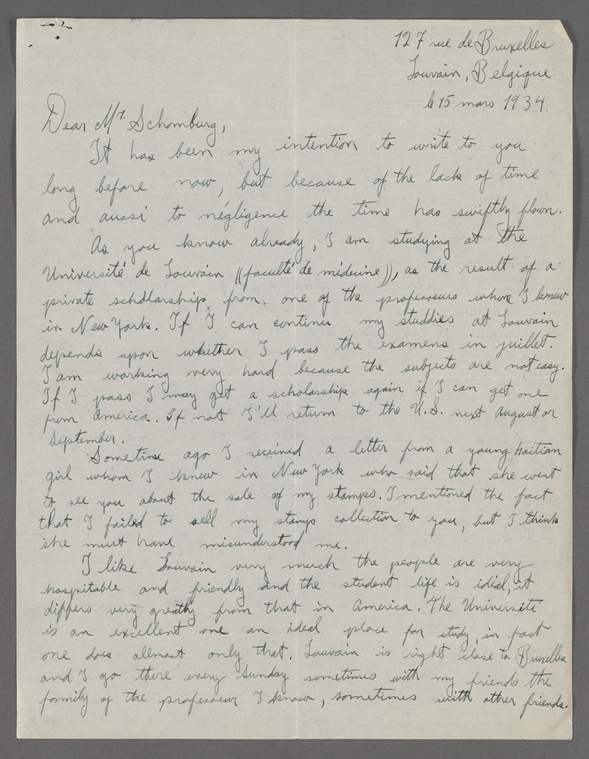 127 rue de Bruxelles
Louvain, Belgique
le 15 mars 1934.
Dear Mr. Schomburg,
It has been my intention to write to you
long before now, but because of the lack of time
and aussi to négligence the time has swiftly flown.
As you know already, I am studying at the
Université de Louvain ((faculté de médecine)), as the result of a
private scholarship from one of the professeurs whom I knew
in New York. If I can continu my studdies at Louvain
depends upon whether I pass the examens in juillet.
I am working very hard because the subjects are not easy.
If I pass I may get a scholarship again if I can get one
from America. If not I'll return to the U.S. next August or
September.
Sometime ago I received a letter from a young haitian
girl whom I knew in New York who said that she went
to see you about the sale of my stamps. I mentioned the fact
that I failed to sell my stamps collection to you, but I think
she must have misunderstood me.
I like Louvain very much the people are very
hospitable and friendly and the student life is idéd, it
differs very greatly from that in America. The Université
is an excellent one an ideal place for study, in fact
one does allmost only that. Louvain is right close to Bruxelles
and I go there every Sunday sometimes with my friends the
family of the professeur I know, sometimes with other friends.